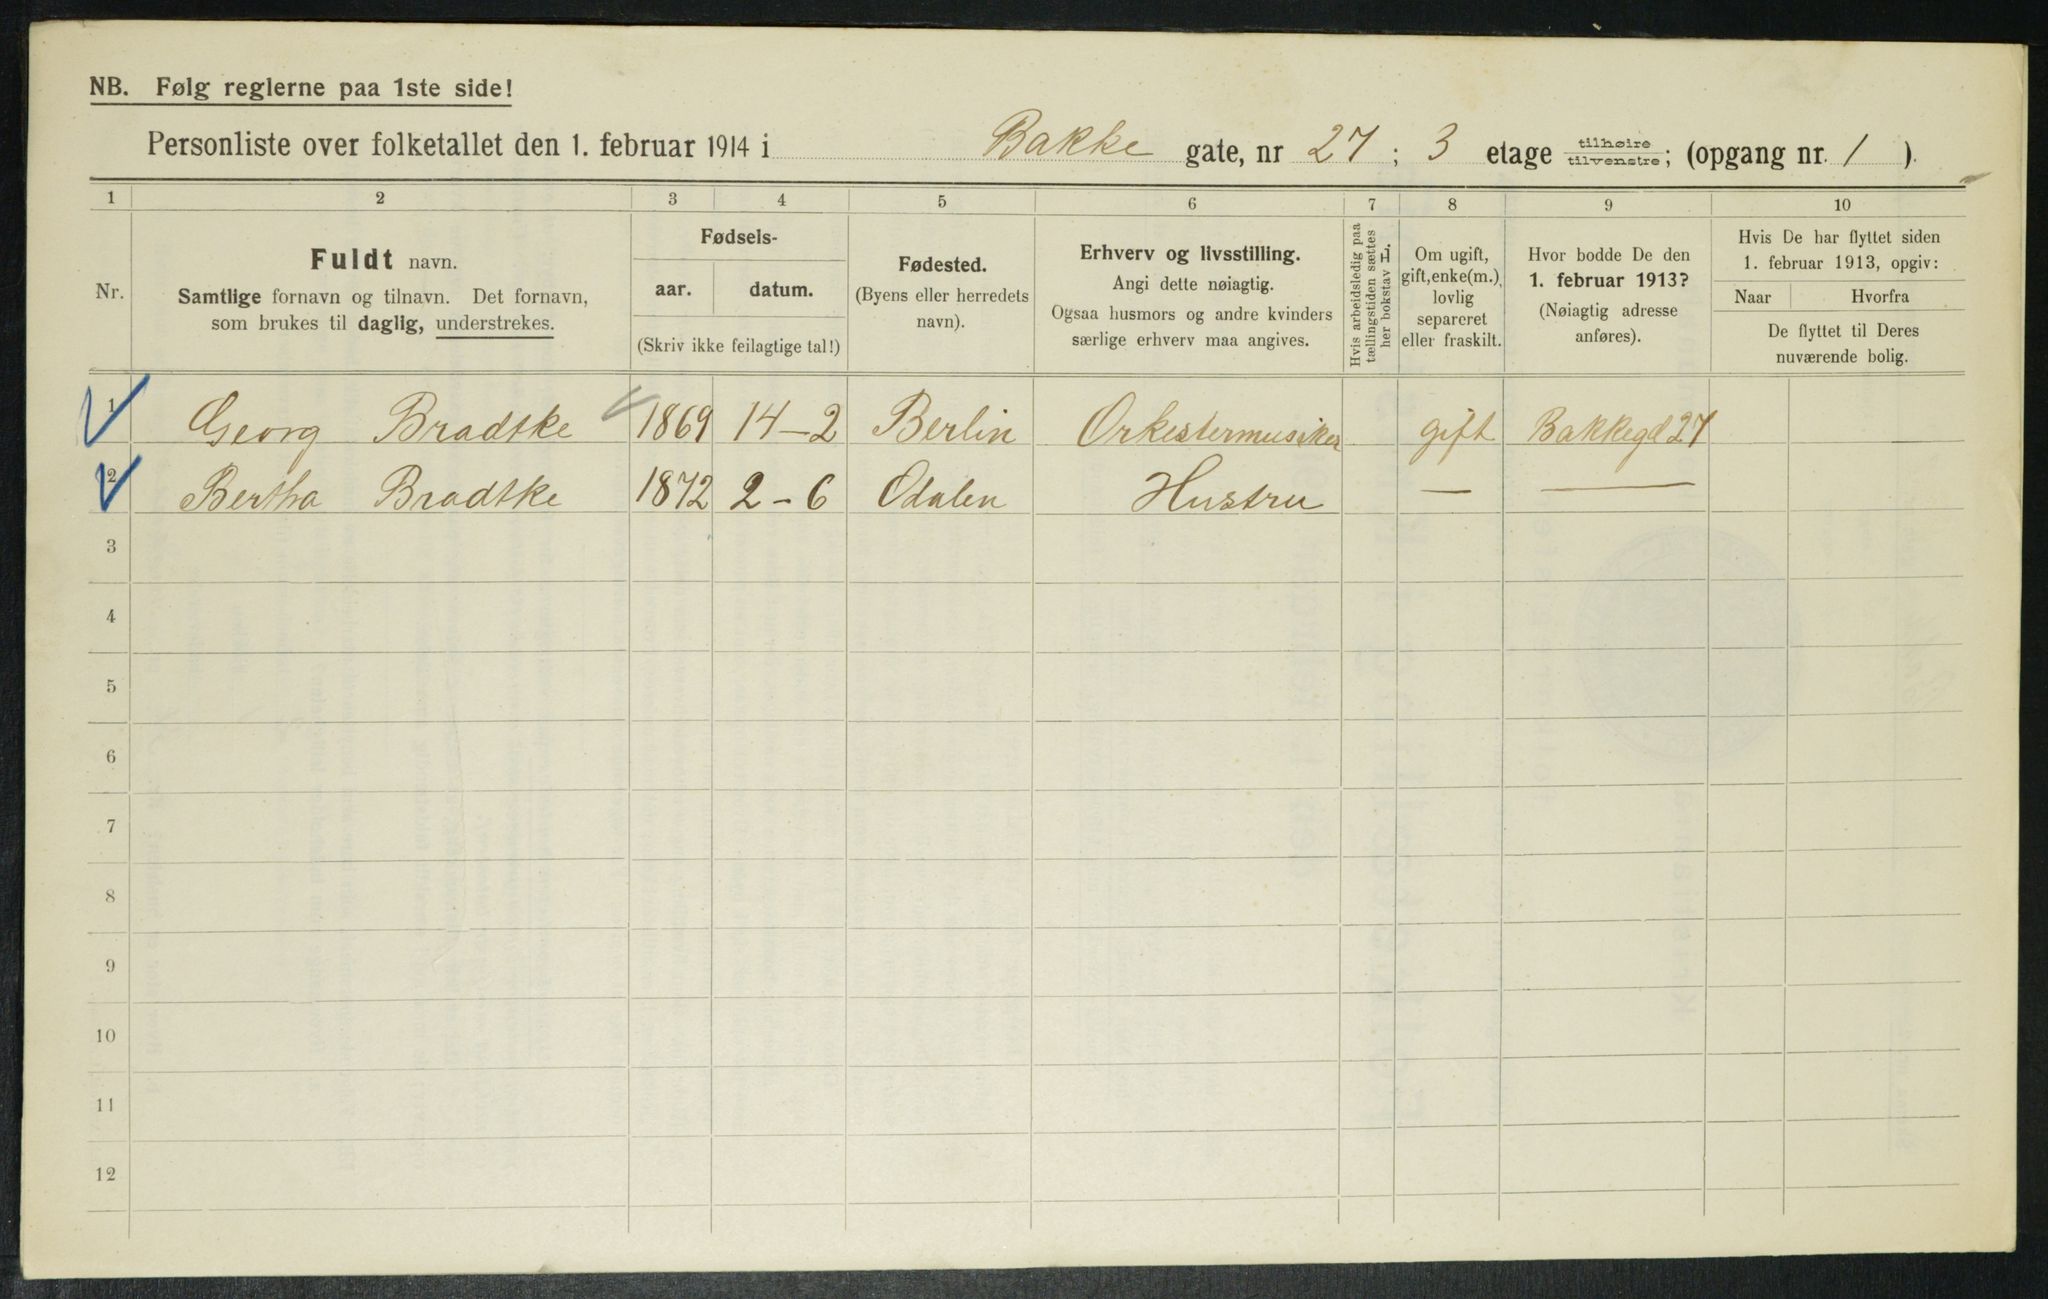 NB. Følg reglerne paa 1ste side!
Personliste over folketallet den 1. februar 1914 i Bakke gate, nr 27; 3 etage tilhøire/tilvenstre; (opgang nr. 1).
1 2 3 4 5 6 7 8 9 10
Nr.
Fuldt navn.
Samtlige fornavn og tilnavn. Det fornavn,
som brukes til daglig, understrekes.
Fødsels-
aar. datum.
(Skriv ikke feilagtige tal!)
Fødested.
(Byens eller herredets
navn).
Erhverv og livsstilling.
Angi dette nøiagtig.
Ogsaa husmors og andre kvinders
særlige erhverv maa angives.
Hvis arbeidsledig paa
tællingstiden sættes
her bokstav H.
Om ugift,
gift, enke(m.),
lovlig
separeret
eller fraskilt.
Hvor bodde De den
1. februar 1913?
(Nøiagtig adresse
anføres).
Hvis De har flyttet siden
1. februar 1913, opgiv:
Naar Hvorfra
De flyttet til Deres
nuværende bolig.
1 Georg Bradtke 1869 14-2 Berlin Orkestermusiker gift Bakkegd 27
2 Bertha Bradtke 1872 2-6 Odalen Hustru — —
3
4
5
6
7
8
9
10
11
12